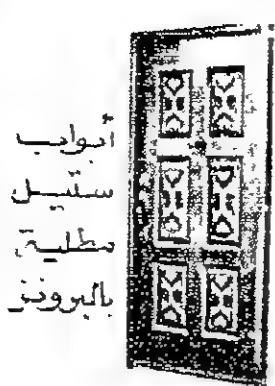 أبواب
ستيل
مطلية
بالبرونز